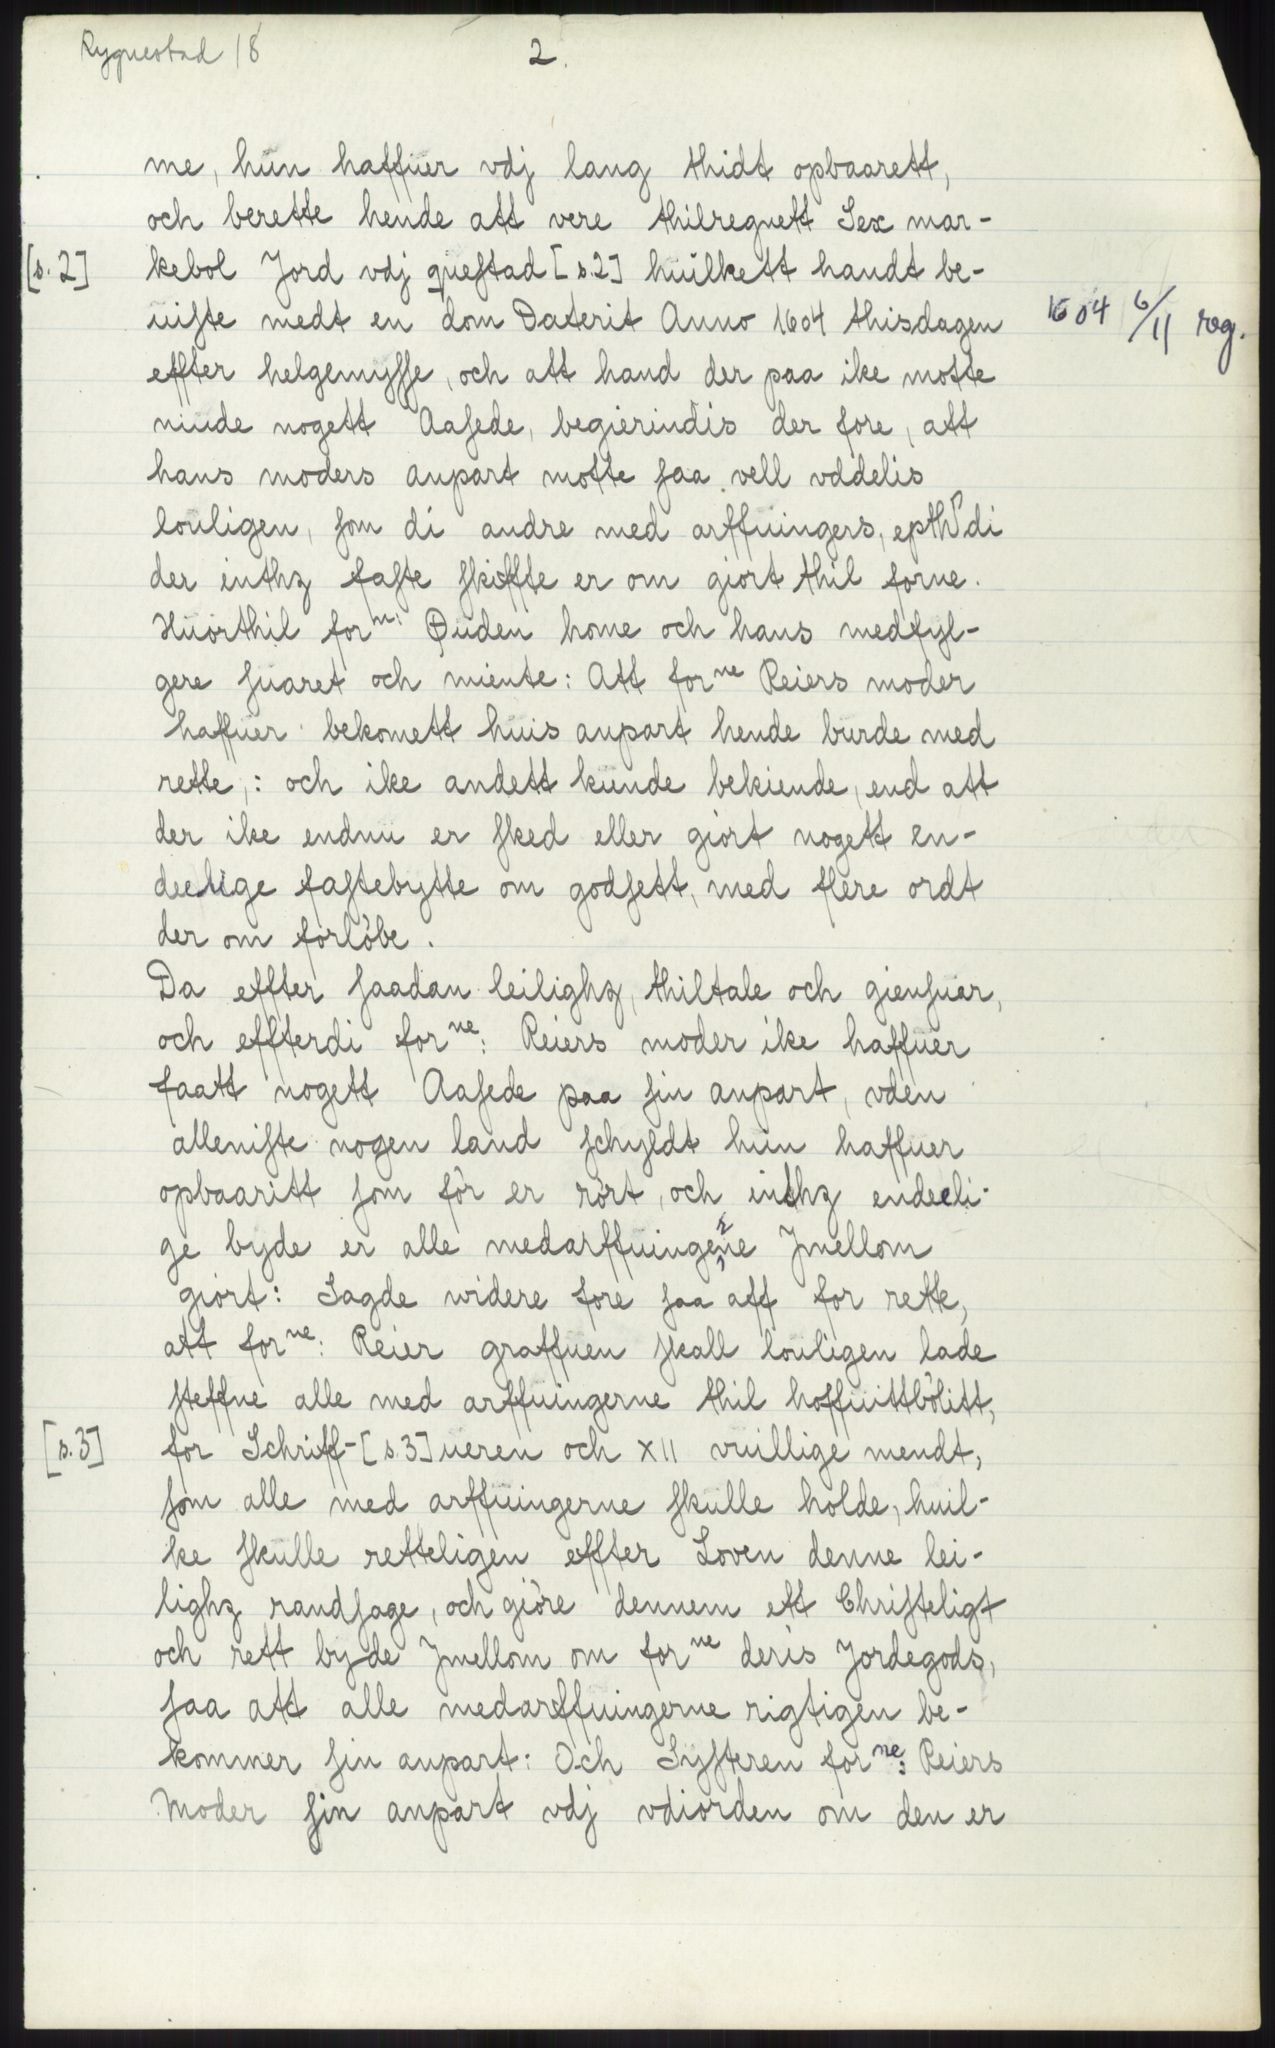 Rygnestad 18
2.
me, hun haffuer vdj lang thidt opbaarett,
och berette hende att vere thilregnett Sex mar-
[s. 2] kebol Jord vdj questad [s. 2] huilkett handt be-
uiste medt en dom Daterit Anno 1604 thisdagen
1604 6/11 reg.
effter helgemysse, och att hand der paa ike motte
niude nogett Aasede, begierindis der fore, att
hans moders anpart motte saa vell vddelis
louligen, som di andre med arffuingers, epthr di
der inthz faste skiffte er om giort thil forne.
Huorthil forne: Ouden home och hans medfyl-
gere suaret och miente: Att forne Reiers moder
haffuer bekomett huis anpart hende burde med
rette,: och ike andett kunde bekiende, end att
der ike endnu er sked eller giort nogett en-
deelige fastebytte om godsett, med flere ordt
der om forlòbe.
Da effter saadan leilighz, thiltale och giensuar,
och effterdi forne: Reiers moder ike haffuer
faatt nogett Aasede paa sin anpart, vden
alleniste nogen land schyldt hun haffuer
opbaaritt som fòr er ròrt, och inthz endeeli-
ge byde er alle medarffuingerne Jmellom
giort: Sagde widere fore saa aff for rette,
att forne: Reier graffuen skall louligen lade
steffne alle med arffuingerne thil hoffuittbòlitt,
[s. 3] for Schriff-[s. 3]ueren och XII vuillige mendt,
som alle med arffuingerne skulle holde, huil-
ke skulle retteligen effter Loven denne lei-
lighz randsage, och giòre dennem ett Christeligt
och rett byde Jmellom om forne deris Jordegods,
saa att alle medarffuingerne rigtigen be-
kommer sin anpart: Och Systeren forne: Reiers
Moder sin anpart vdj vdiorden om den er